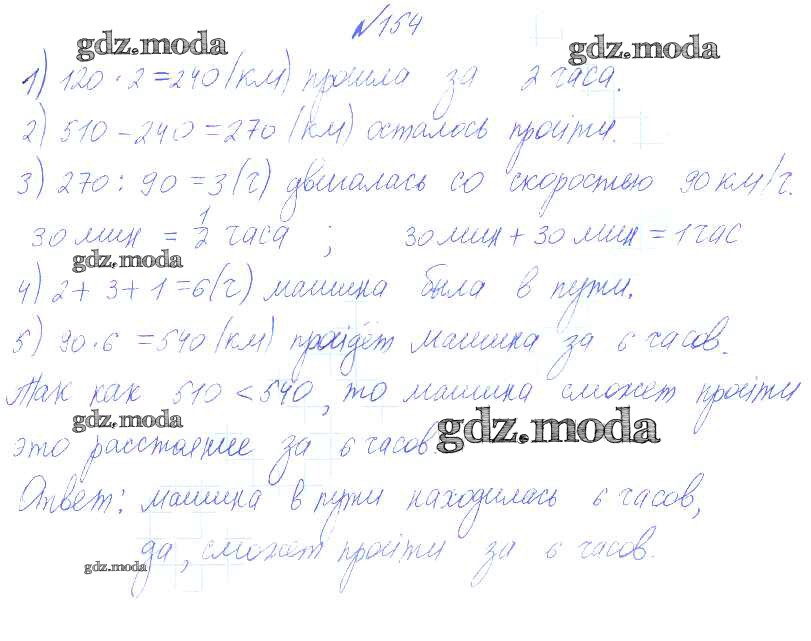 №154
gdz.moda gdz.moda
1) 120 · 2 = 240 (км) прошла за 2 часа.
2) 510 - 240 = 270 (км) осталось пройти.
3) 270 : 90 = 3 (ч) двигалась со скоростью 90 км/ч.
30 мин = 1/2 часа ; 30 мин + 30 мин = 1 час
gdz.moda
4) 2 + 3 + 1 = 6 (ч) машина была в пути.
5) 90 · 6 = 540 (км) пройдёт машина за 6 часов.
Так как 510 < 540, то машина сможет пройти
gdz.moda gdz.moda
это расстояние за 6 часов.
Ответ: машина в пути находилась 6 часов,
да, сможет пройти за 6 часов.
gdz.moda